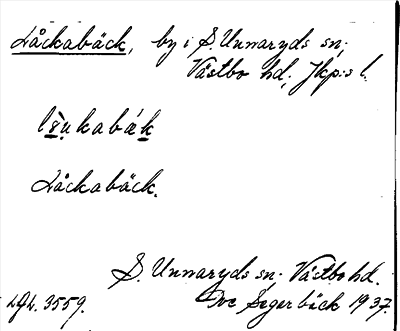 Låckabäck, by i S. Unnaryds sn,
Västbo hd, Jkp:s l.
Låckabäck.
S. Unnaryds sn. Västbo hd.
LAL. 3559. Ove Segerbäck 1937.